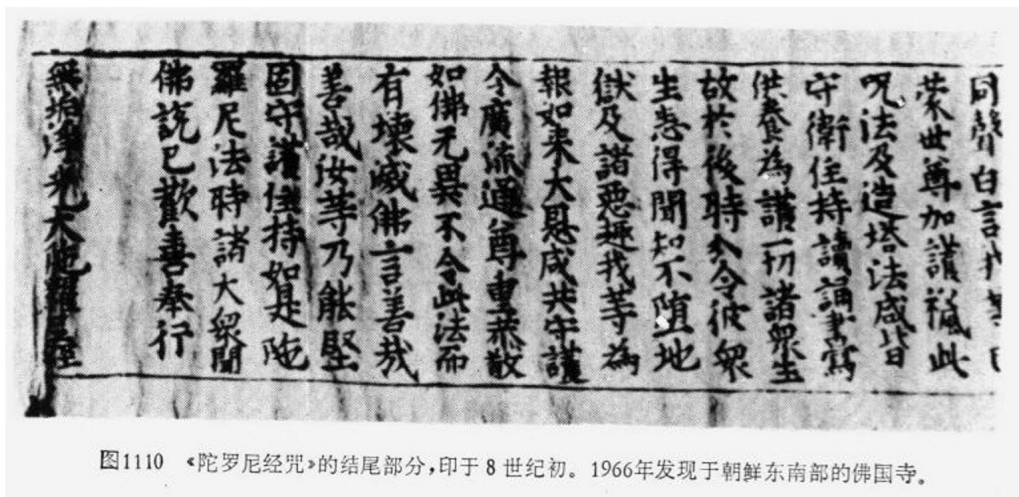 同聲白言我等
蒙世尊加護授此
呪法及造塔法咸皆
守衛住持讀誦書寫
供養為護一切諸衆生
故於後時分令彼衆
生悉得聞知不墮地
獄及諸惡趣我等為
報如来大恩咸共守護
令廣流通尊重恭敬
如佛无異不令此法而
有壞滅佛言善哉
善哉汝等乃能堅
固守護住持如是陁
羅尼法時諸大衆聞
佛說已歡喜奉行
無垢淨光大陁羅尼經
图1110 《陀罗尼经咒》的结尾部分,印于8世纪初。1966年发现于朝鲜东南部的佛国寺。